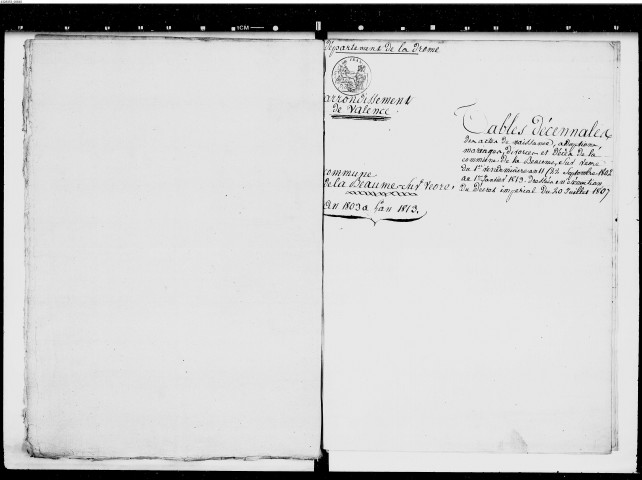 Département de la Drome
arrondissement
de Valence
Commune
de la Beaume sur Veore,
an 1803 a l'an 1813.
Tables Décennales
des actes de naissance, adoptions,
mariages, divorces et Décès de la
commune de la Beaume, sur Veore
du 1er Vendemiaire an 11 (24 Septembre 1802
au 1er Janvier 1813. Dressées en Execution
du Décret impérial du 20 Juillet 1807